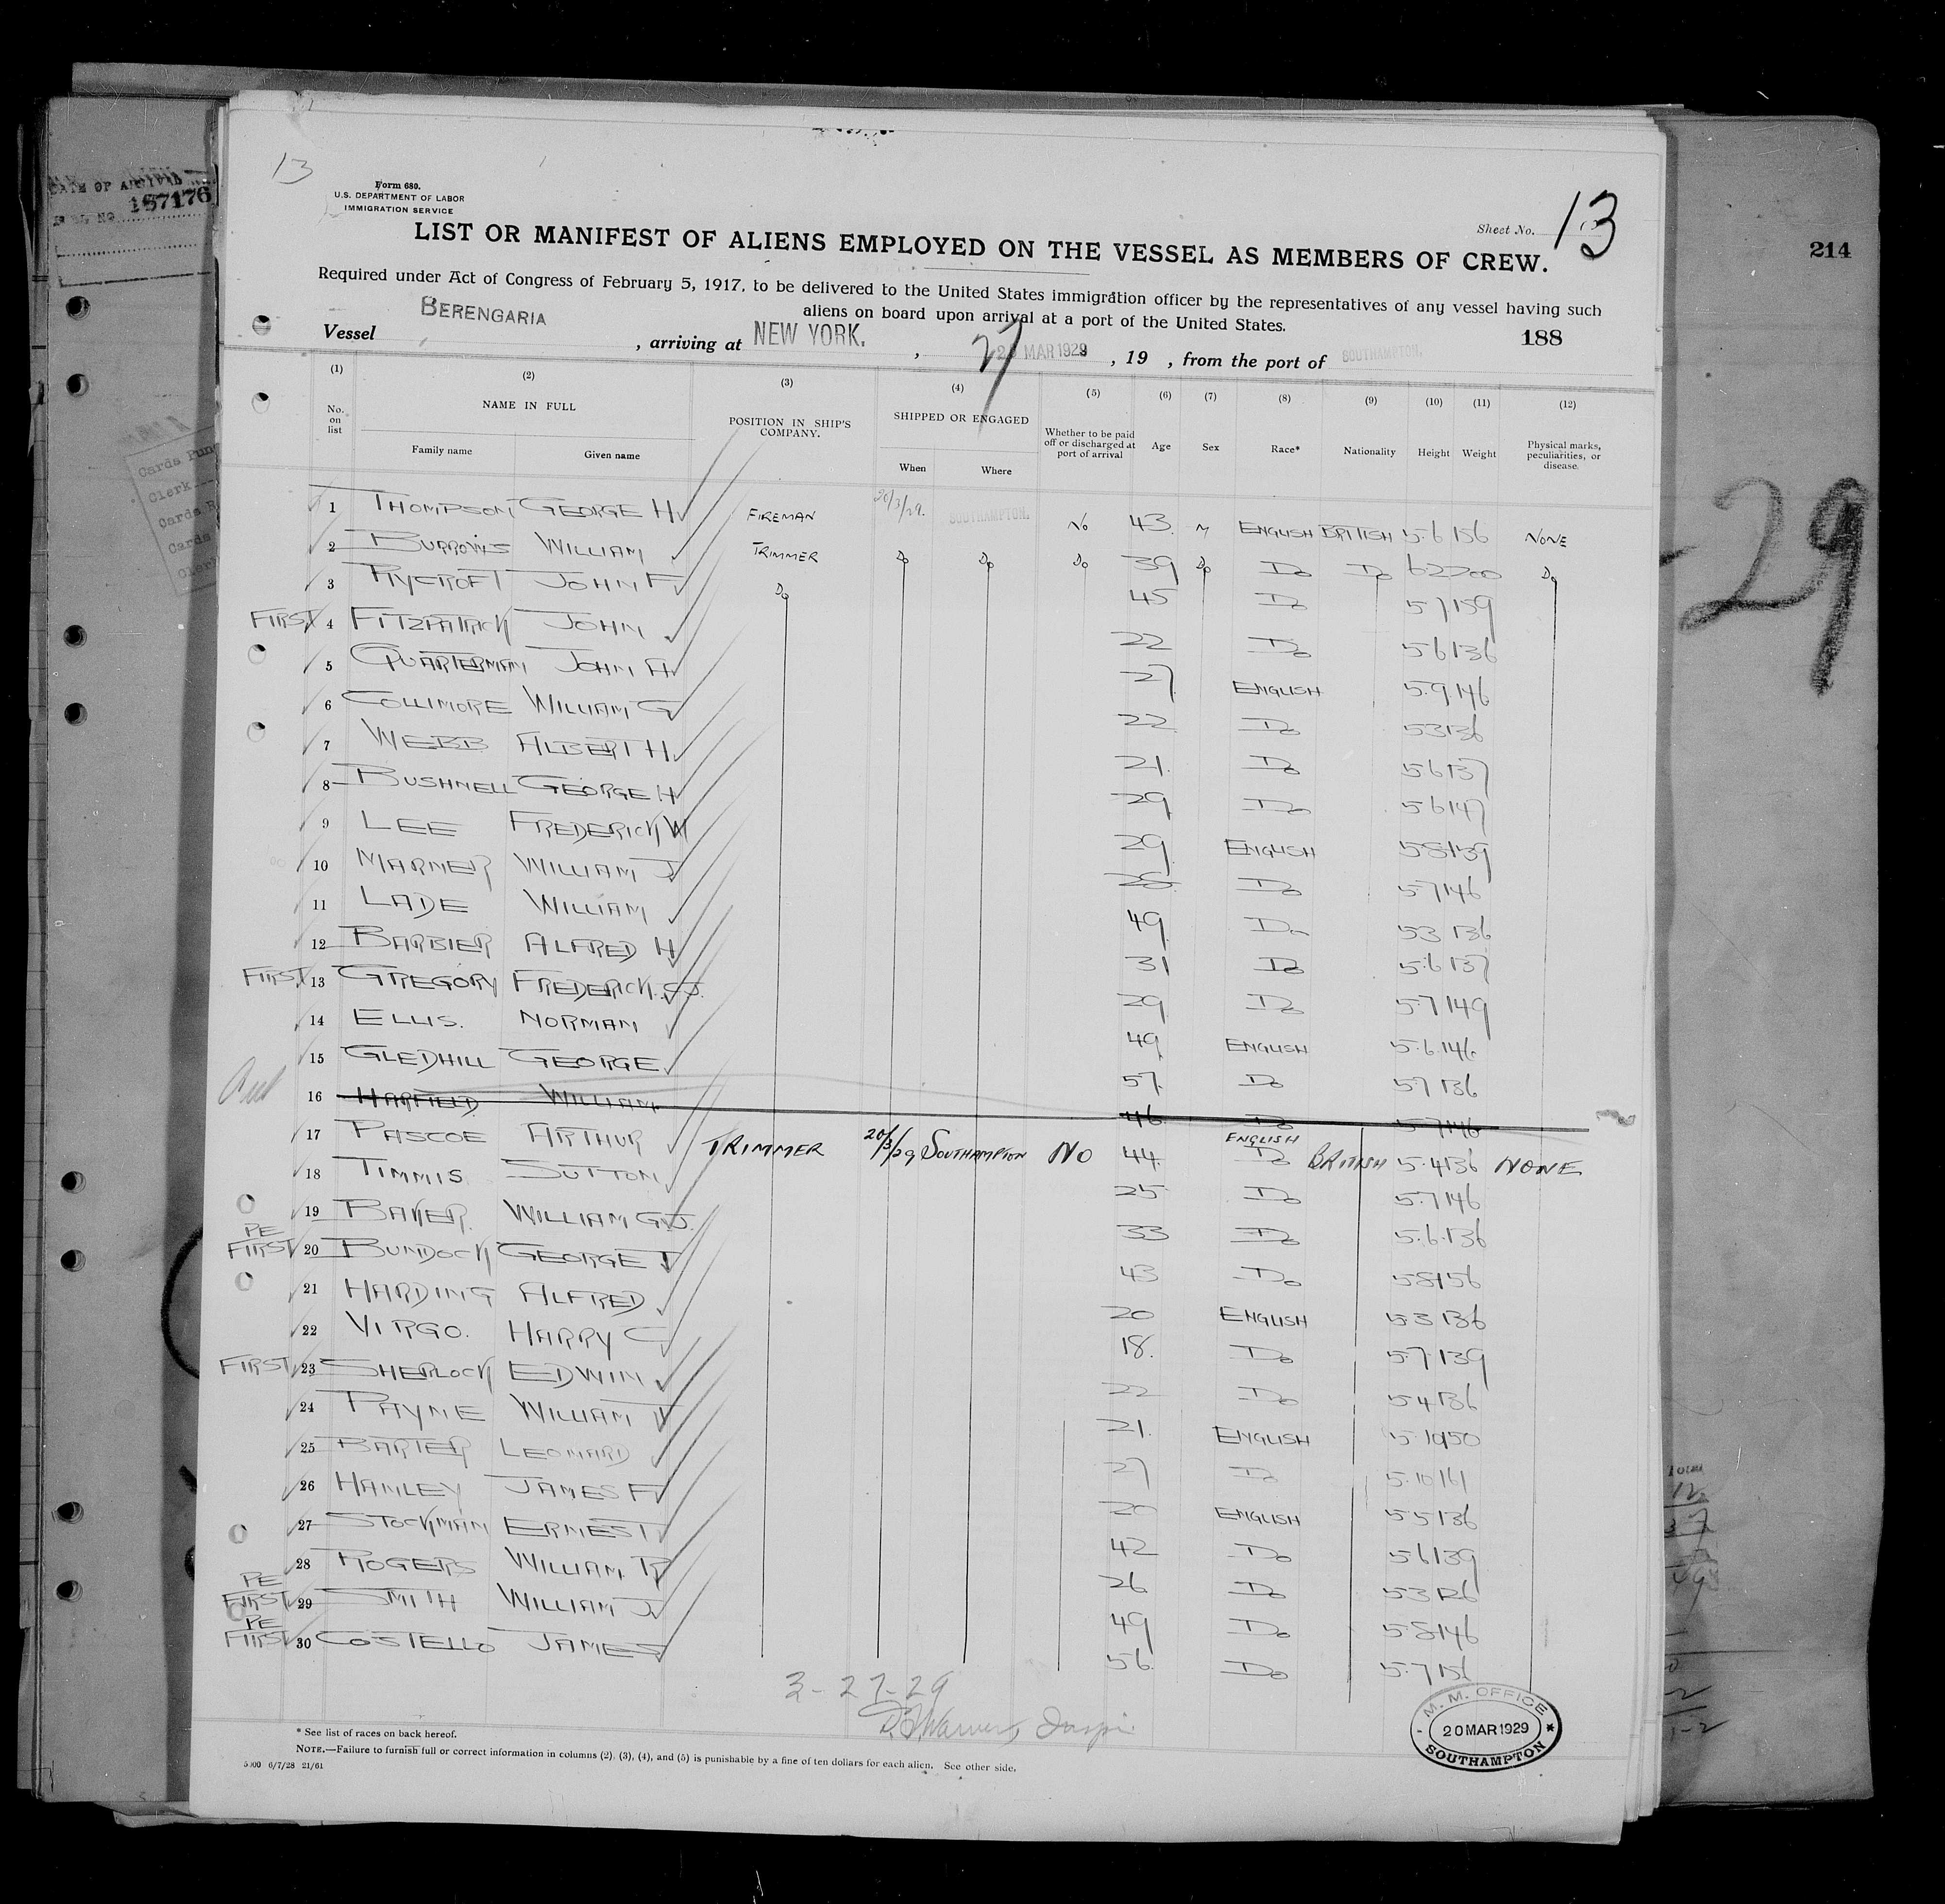 13
Form 680.
U.S. DEPARTMENT OF LABOR
IMMIGRATION SERVICE
Sheet No. 13
DATE OF ARRIVAL
187176
214
LIST OR MANIFEST OF ALIENS EMPLOYED ON THE VESSEL AS MEMBERS OF CREW.
Required under Act of Congress of February 5, 1917, to be delivered to the United States immigration officer by the representatives of any vessel having such
aliens on board upon arrival at a port of the United States.
188
Vessel BERENGARIA, arriving at NEW YORK., 27 MAR 1929, 19 , from the port of SOUTHAMPTON.
(1) (2) (3) (4) (5) (6) (7) (8) (9) (10) (11) (12)
No. on list NAME IN FULL POSITION IN SHIP'S COMPANY. SHIPPED OR ENGAGED Whether to be paid off or discharged at port of arrival Age Sex Race* Nationality Height Weight Physical marks, peculiarities, or disease.
Family name Given name When Where
1 THOMPSON GEORGE H FIREMAN 20/3/29. SOUTHAMPTON. NO 43 M ENGLISH BRITISH 5.6 156 NONE
2 BURROWS WILLIAM TRIMMER Do Do Do 39 Do Do Do 6 2 200 Do
3 RYCROFT JOHN F Do 45 Do 5 7 159
FIRST 4 FITZPATRICK JOHN 22 Do 5 6 136
5 QUARTERMAN JOHN A 27 ENGLISH 5.9 146
6 COLLIMORE WILLIAM G 22 Do 5 3 136
7 WEBB ALBERT H 21. Do 5 6 137
8 BUSHNELL GEORGE H 29 Do 5 6 147
9 LEE FREDERICK W 29 ENGLISH 5 8 139
10 MARNER WILLIAM J 28 Do 5 7 146
11 LADE WILLIAM 49 Do 5 3 136
12 BARBIER ALFRED H 31 Do 5.6 137
FIRST 13 GREGORY FREDERICK. C J. 29 Do 5.7 149
14 ELLIS. NORMAN 49 ENGLISH 5.6.146
15 GLEDHILL GEORGE 57. Do 5 7 136
16 HARFIELD WILLIAM. 46 Do 5 7 146
17 PASCOE ARTHUR TRIMMER 20/3/29 SOUTHAMPTON NO 44. ENGLISH Do BRITISH 5.4 136 NONE
18 TIMMIS SUTTON 25 Do 5.7 146
19 BAKER. WILLIAM G.J. 33 Do 5.6.136
PE
FIRST 20 BUNDOCK GEORGE J 43 Do 5 8 156
21 HARDING ALFRED 20 ENGLISH 5 3 136
22 VIRGO. HARRY C 18. Do 5.7.139
FIRST 23 SHERLOCK EDWIN 22 Do 5 4 136
24 PAYNE WILLIAM 21. ENGLISH 5.10 150
25 BARTER LEONARD 27 Do 5.10 161
26 HANLEY JAMES F 20 ENGLISH 5 5 136
27 STOCKMAN ERNEST 42 Do 5 6 139
28 ROGERS WILLIAM. R 26 Do 5 3 126
PE
FIRST 29 SMITH WILLIAM J 49 Do 5 8 146
PE
FIRST 30 COSTELLO JAMES 56. Do 5.7 156
29
3-27-29
M. M. OFFICE
20 MAR 1929
SOUTHAMPTON
* See list of races on back hereof.
NOTE.—Failure to furnish full or correct information in columns (2), (3), (4), and (5) is punishable by a fine of ten dollars for each alien. See other side.
5000 6/7/28 21/61